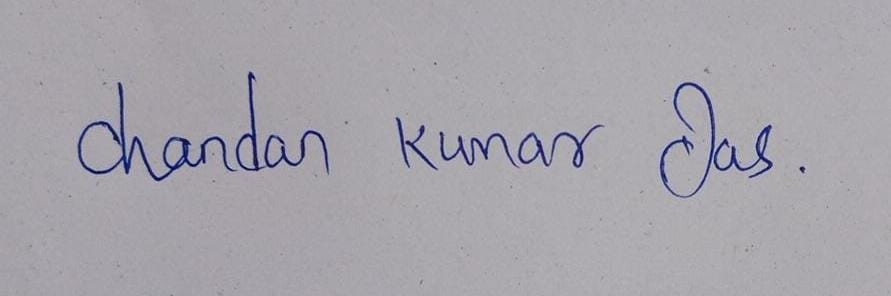 Chandan Kumar Das.